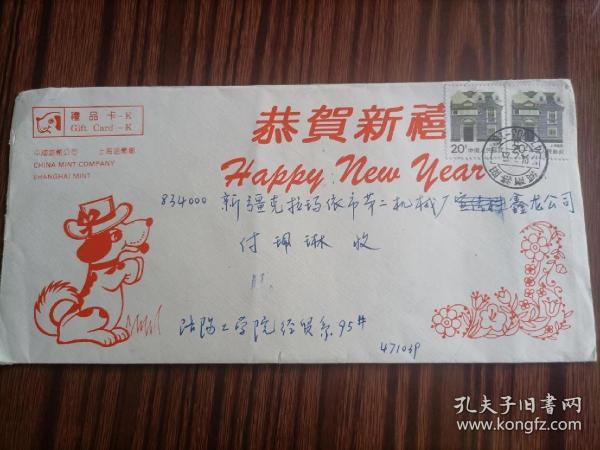 禮品卡-K
Gift Card-K
中國造幣公司 上海造幣廠
CHINA MINT COMPANY
SHANGHAI MINT
恭賀新禧
Happy New Year
20分 中国人民邮政
20分 中国人民邮政
834000 新疆克拉玛依市第二机械厂 鑫龙公司
付珮琳 收
洛阳工学院经贸系95#
471039
孔夫子旧书网
www.kongfz.com